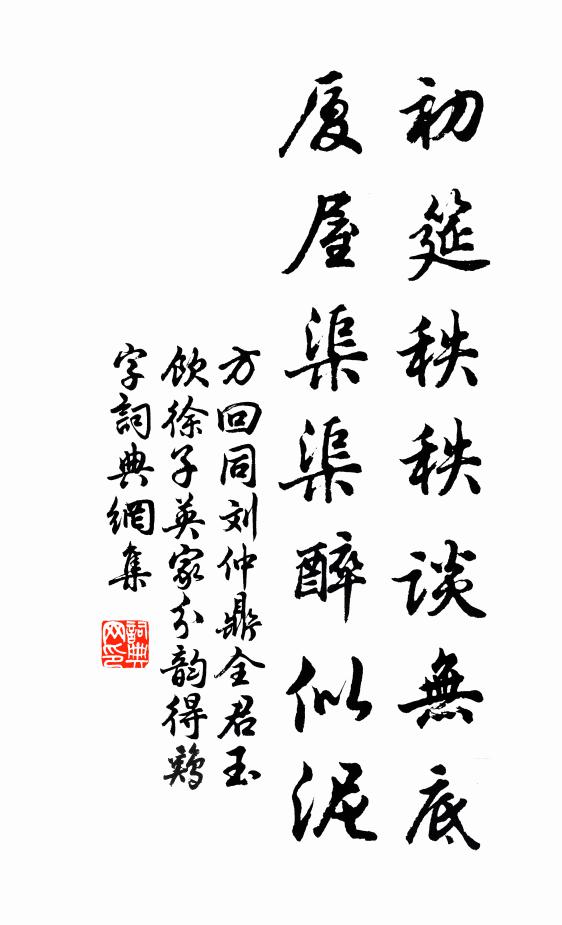 初筵秩秩談無底
厦屋渠渠醉似泥
方回同刘仲鼎全君玉
飲徐子英家分韵得鷄
字詞典網集
詞典网印